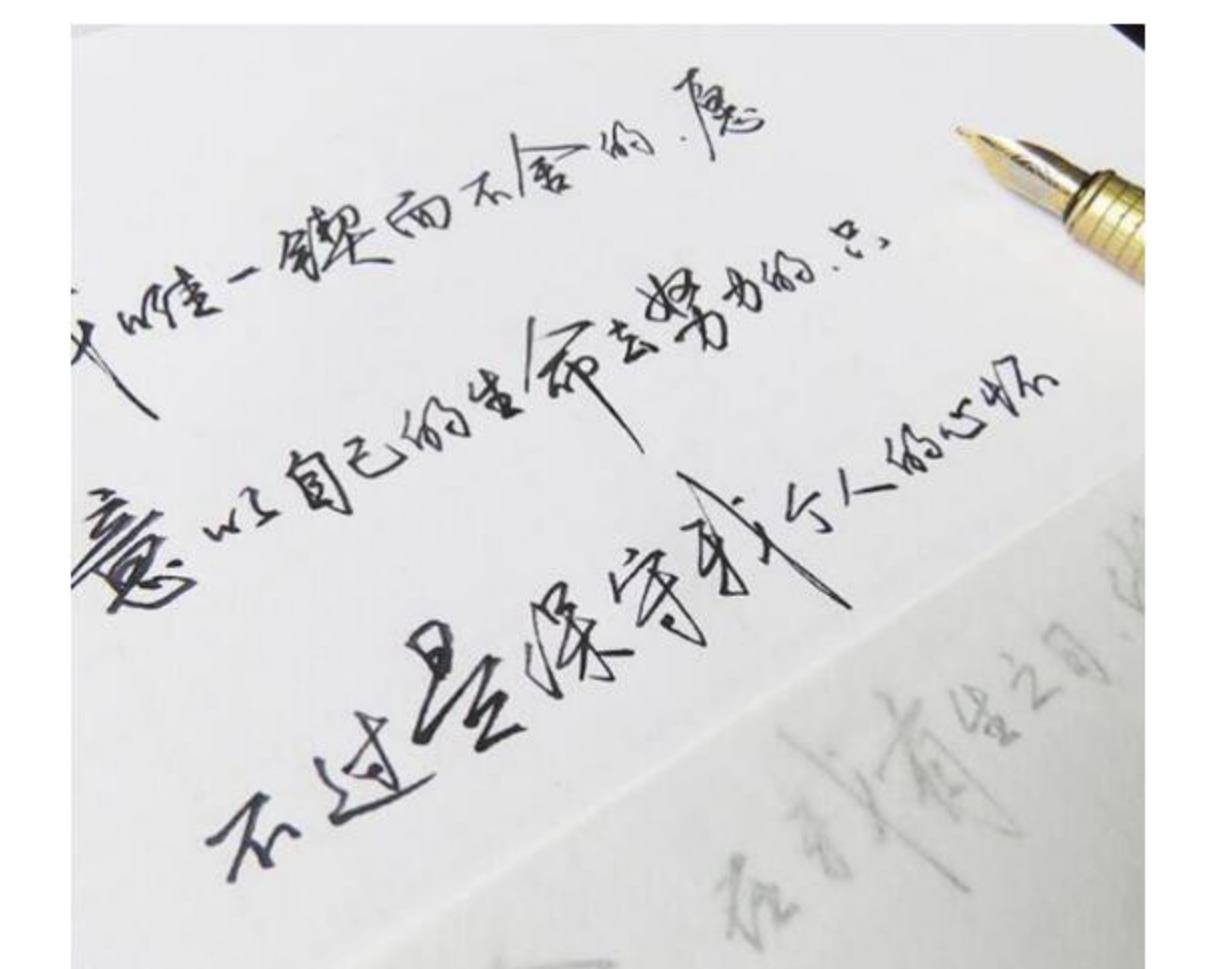 我唯一锲而不舍的.愿
意以自己的生命去努力的.只
不过是保守我个人的心怀
在我有生之日.